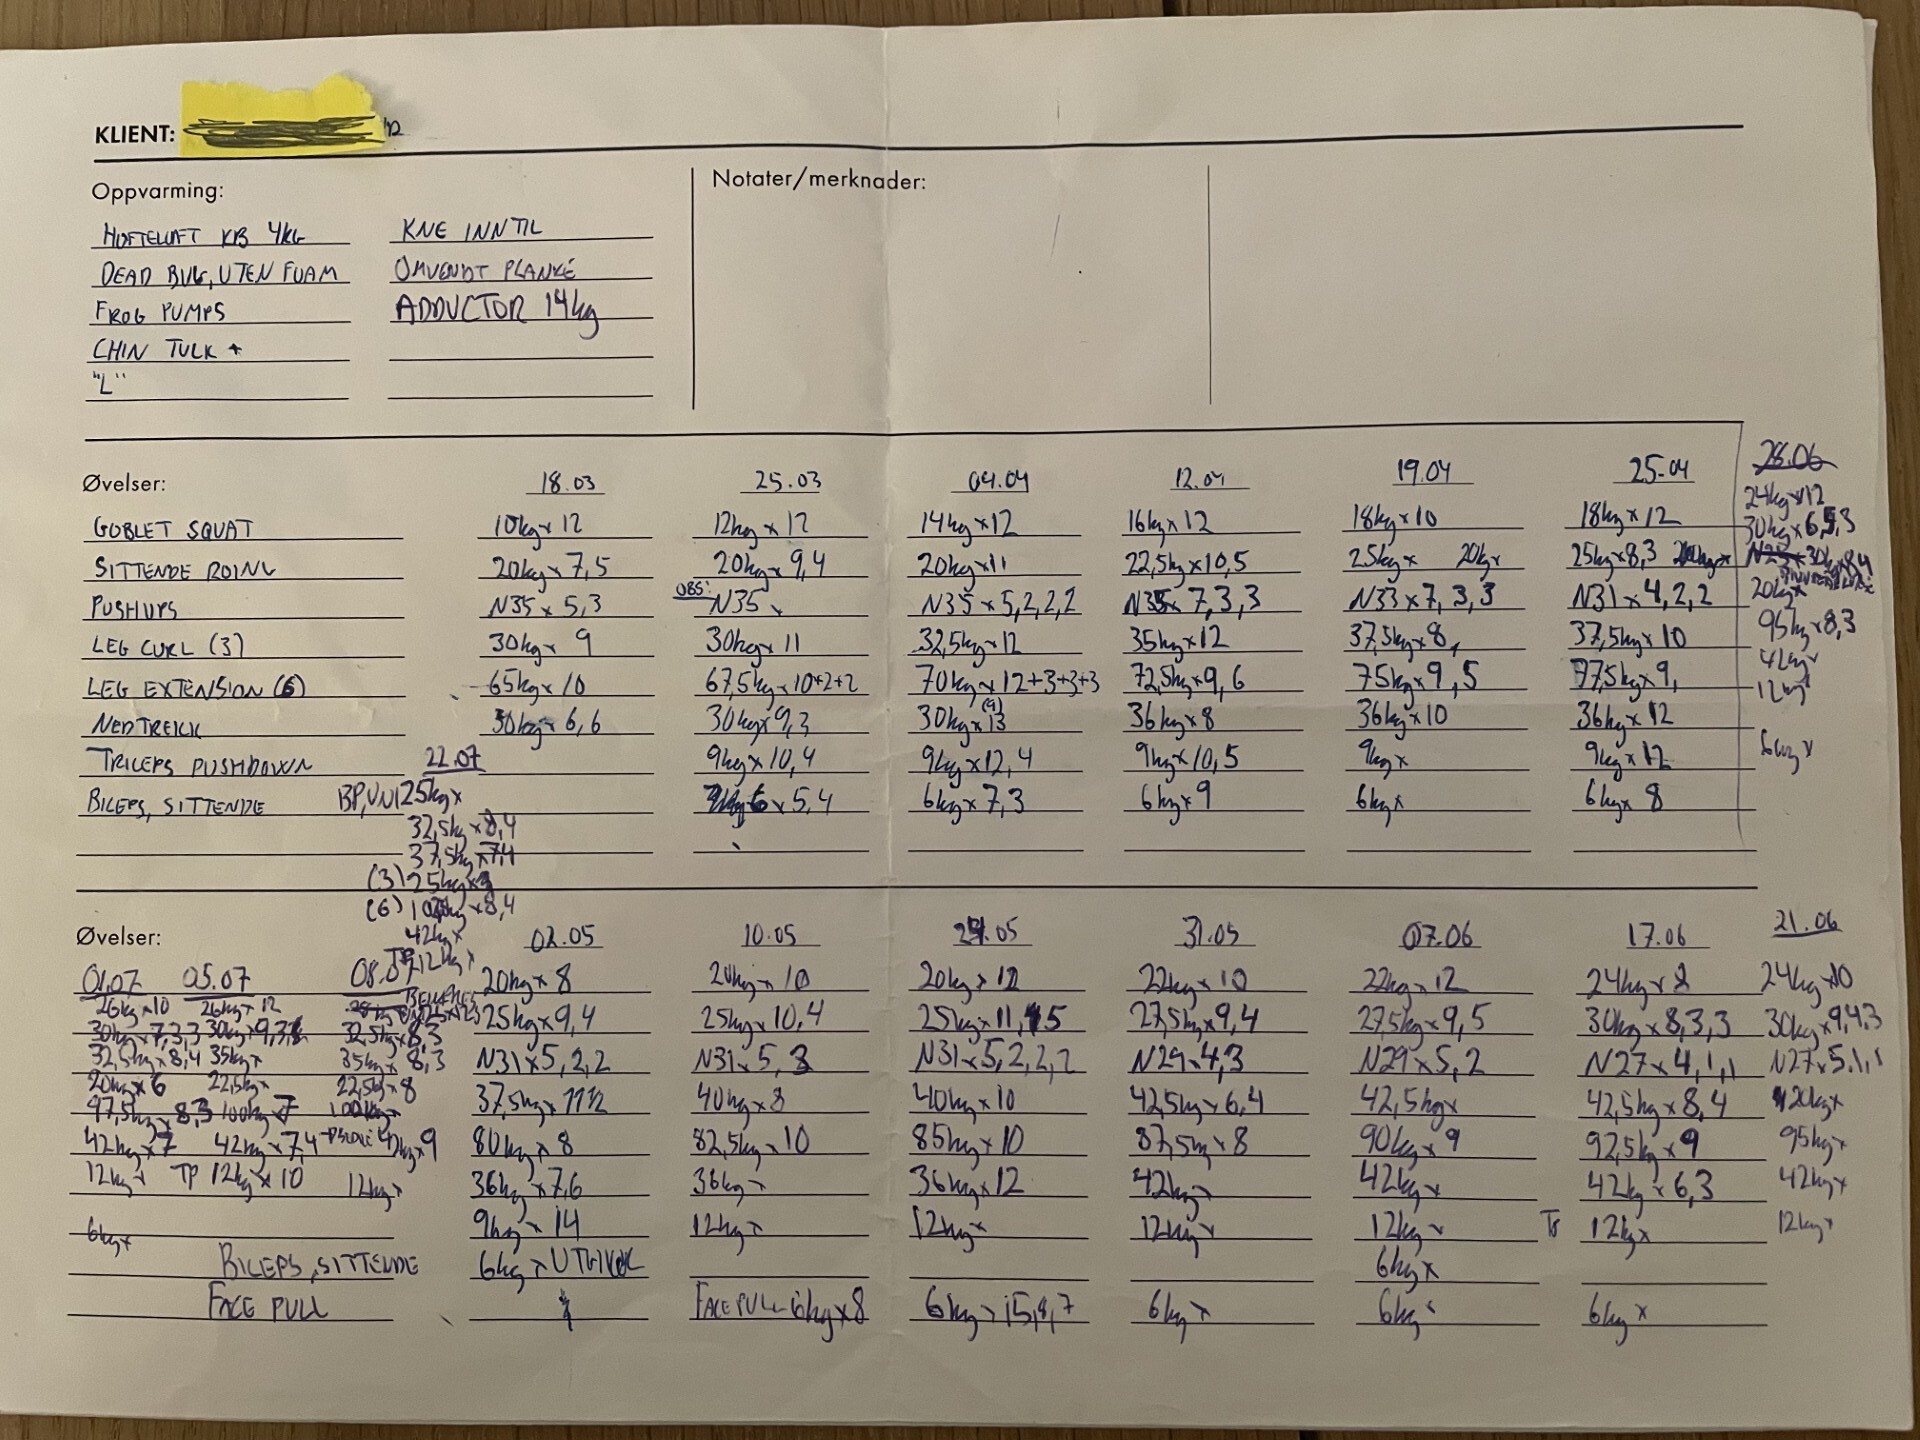 KLIENT:
Oppvarming:
Notater/merknader:
HOFTELØFT KB 4KG
KNE INNTIL
DEAD BUG, UTEN FOAM
OMVENDT PLANKE
FROG PUMPS
ADDUCTOR 14kg
CHIN TULK +
"L"
Øvelser: 18.03 25.03 04.04 12.04 19.04 25.04 28.06
GOBLET SQUAT 10kg x 12 12kg x 12 14kg x 12 16kg x 12 18kg x 10 18kg x 12 24kg x 12
SITTENDE ROING 20kg x 7,5 20kg x 9,4 20kg x 11 22,5kg x 10,5 25kg x 20kg x 25kg x 8,3 30kg x 6,5,3
PUSHUPS N35 x 5,3 OBS: N35 x N35 x 5,2,2,2 N35 x 7,3,3 N33 x 7,3,3 N31 x 4,2,2 20kg x
LEG CURL (3) 30kg x 9 30kg x 11 32,5kg x 12 35kg x 12 37,5kg x 8, 37,5kg x 10 95kg x 8,3
LEG EXTENSION (6) 65kg x 10 67,5kg x 10+2+2 70kg x 12+3+3+3 72,5kg x 9,6 75kg x 9,5 77,5kg x 9, 42kg x
12kg x
NEDTREKK 30kg x 6,6 30kg x 9,3 30kg x 13 (9) 36kg x 8 36kg x 10 36kg x 12
TRICEPS PUSHDOWN 9kg x 10,4 9kg x 12,4 9kg x 10,5 9kg x 9kg x 12 6kg x
BICEPS, SITTENDE 6 x 5,4 6kg x 7,3 6kg x 9 6kg x 6kg x 8
22.07
BP, UNI 25kg x
32,5kg x 8,4
37,5kg x 7,4
(3) 25kg x
(6) x 8,4
42kg x
TP 12kg x
Øvelser: 02.05 10.05 .05 31.05 07.06 17.06 21.06
01.07 05.07 08.07
26kg x 10 26kg x 12
20kg x 8 20kg x 10 20kg x 12 22kg x 10 22kg x 12 24kg x 8 24kg x 10
30kg x 7,3,3 30kg x 9,3, 32,5kg x 8,3
25kg x 9,4 25kg x 10,4 25kg x 11, 5 27,5kg x 9,4 27,5kg x 9,5 30kg x 8,3,3 30kg x 9,4,3
32,5kg x 8,4 35kg x 35kg x 8,3
N31 x 5,2,2 N31 x 5,3 N31 x 5,2,2,2 N29 x 4,3 N29 x 5,2 N27 x 4,1,1 N27 x 5,1,1
20kg x 6 22,5kg x 22,5kg x 8
37,5kg x 11½ 40kg x 8 40kg x 10 42,5kg x 6,4 42,5kg x 42,5kg x 8,4 20kg x
97,5kg x 8,3 100kg x 7 100kg x
80kg x 8 82,5kg x 10 85kg x 10 87,5kg x 8 90kg x 9 92,5kg x 9 95kg x
42kg x 7 42kg x 7,4 42kg x 9
36kg x 7,6 36kg x 36kg x 12 42kg x 42kg x 42kg x 6,3 42kg x
12kg x TP 12kg x 10 12kg x
9kg x 14 12kg x 12kg x 12kg x 12kg x 12kg x 12kg x
6kg x
BICEPS, SITTENDE 6kg x 6kg x
FACE PULL FACE PULL 6kg x 8 6kg x 15,8,7 6kg x 6kg x 6kg x